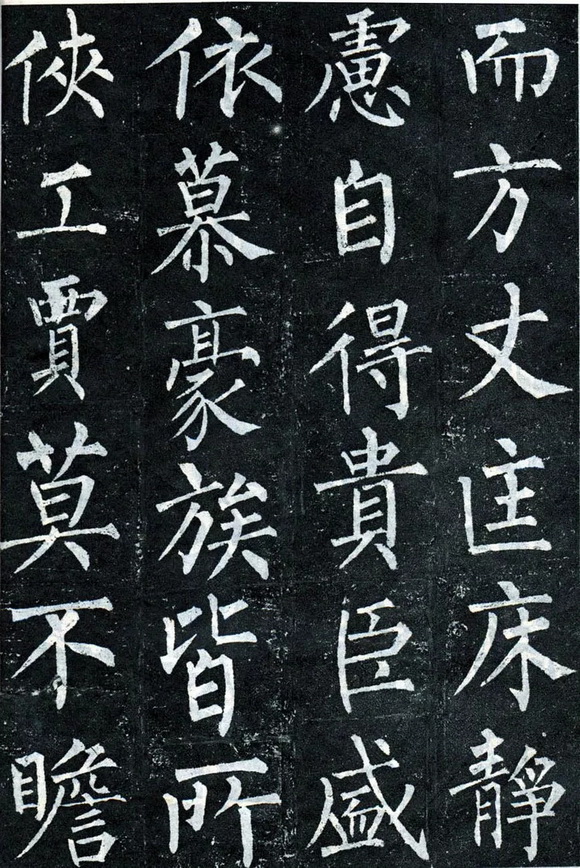 而方丈匡床靜
慮自得貴臣盛
族皆所依慕豪
俠工賈莫不瞻